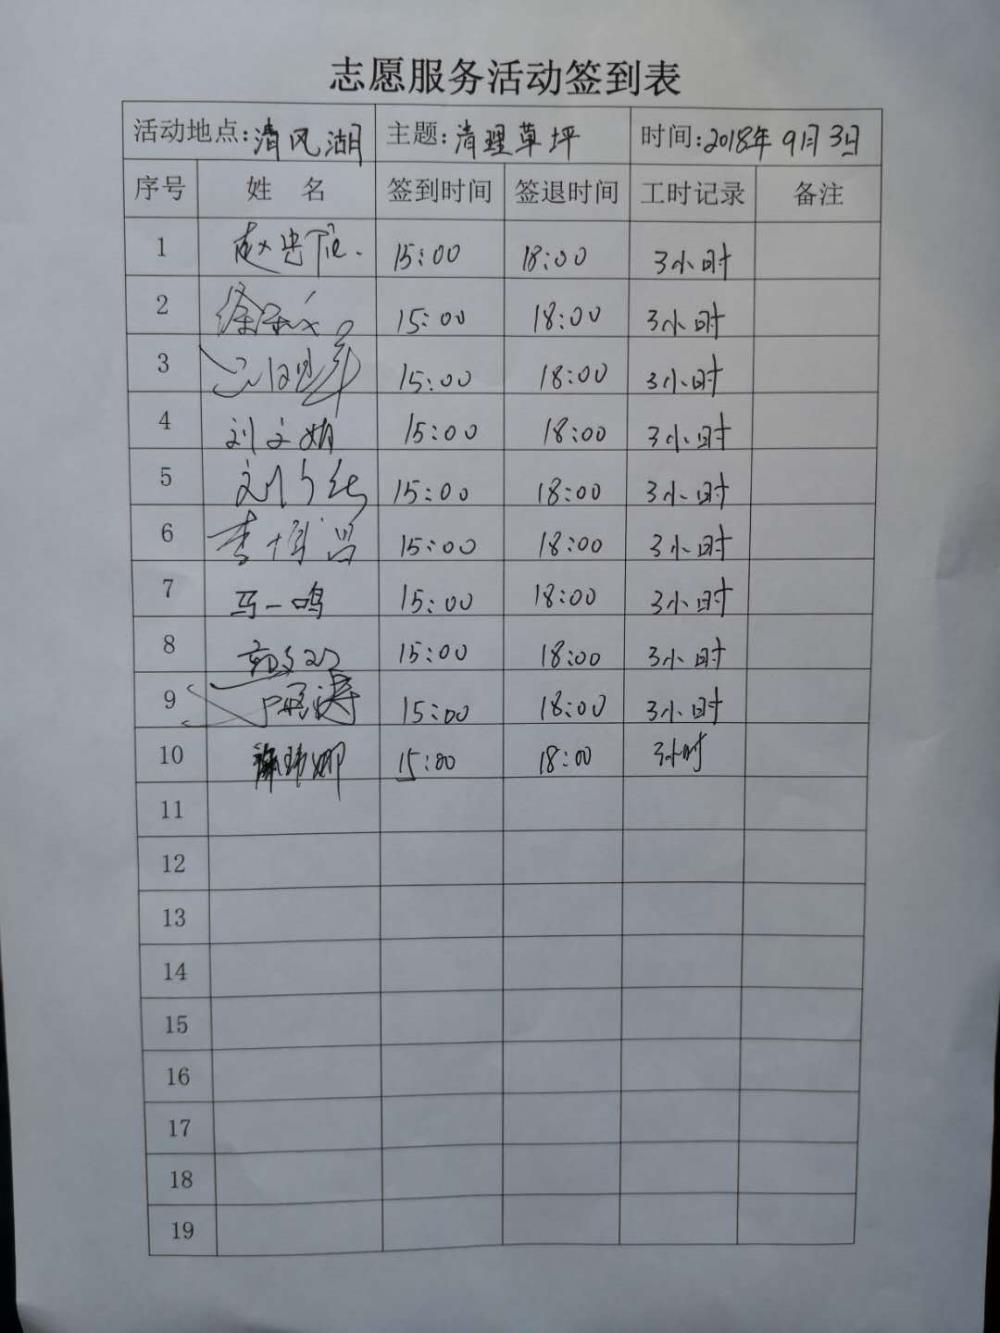 志愿服务活动签到表
活动地点:清风湖 主题:清理草坪 时间:2018年9月3日
序号 姓名 签到时间 签退时间 工时记录 备注
1 15:00 18:00 3小时
2 15:00 18:00 3小时
3 15:00 18:00 3小时
4 刘文娟 15:00 18:00 3小时
5 15:00 18:00 3小时
6 15:00 18:00 3小时
7 马一鸣 15:00 18:00 3小时
8 15:00 18:00 3小时
9 15:00 18:00 3小时
10 15:00 18:00 3小时
11
12
13
14
15
16
17
18
19